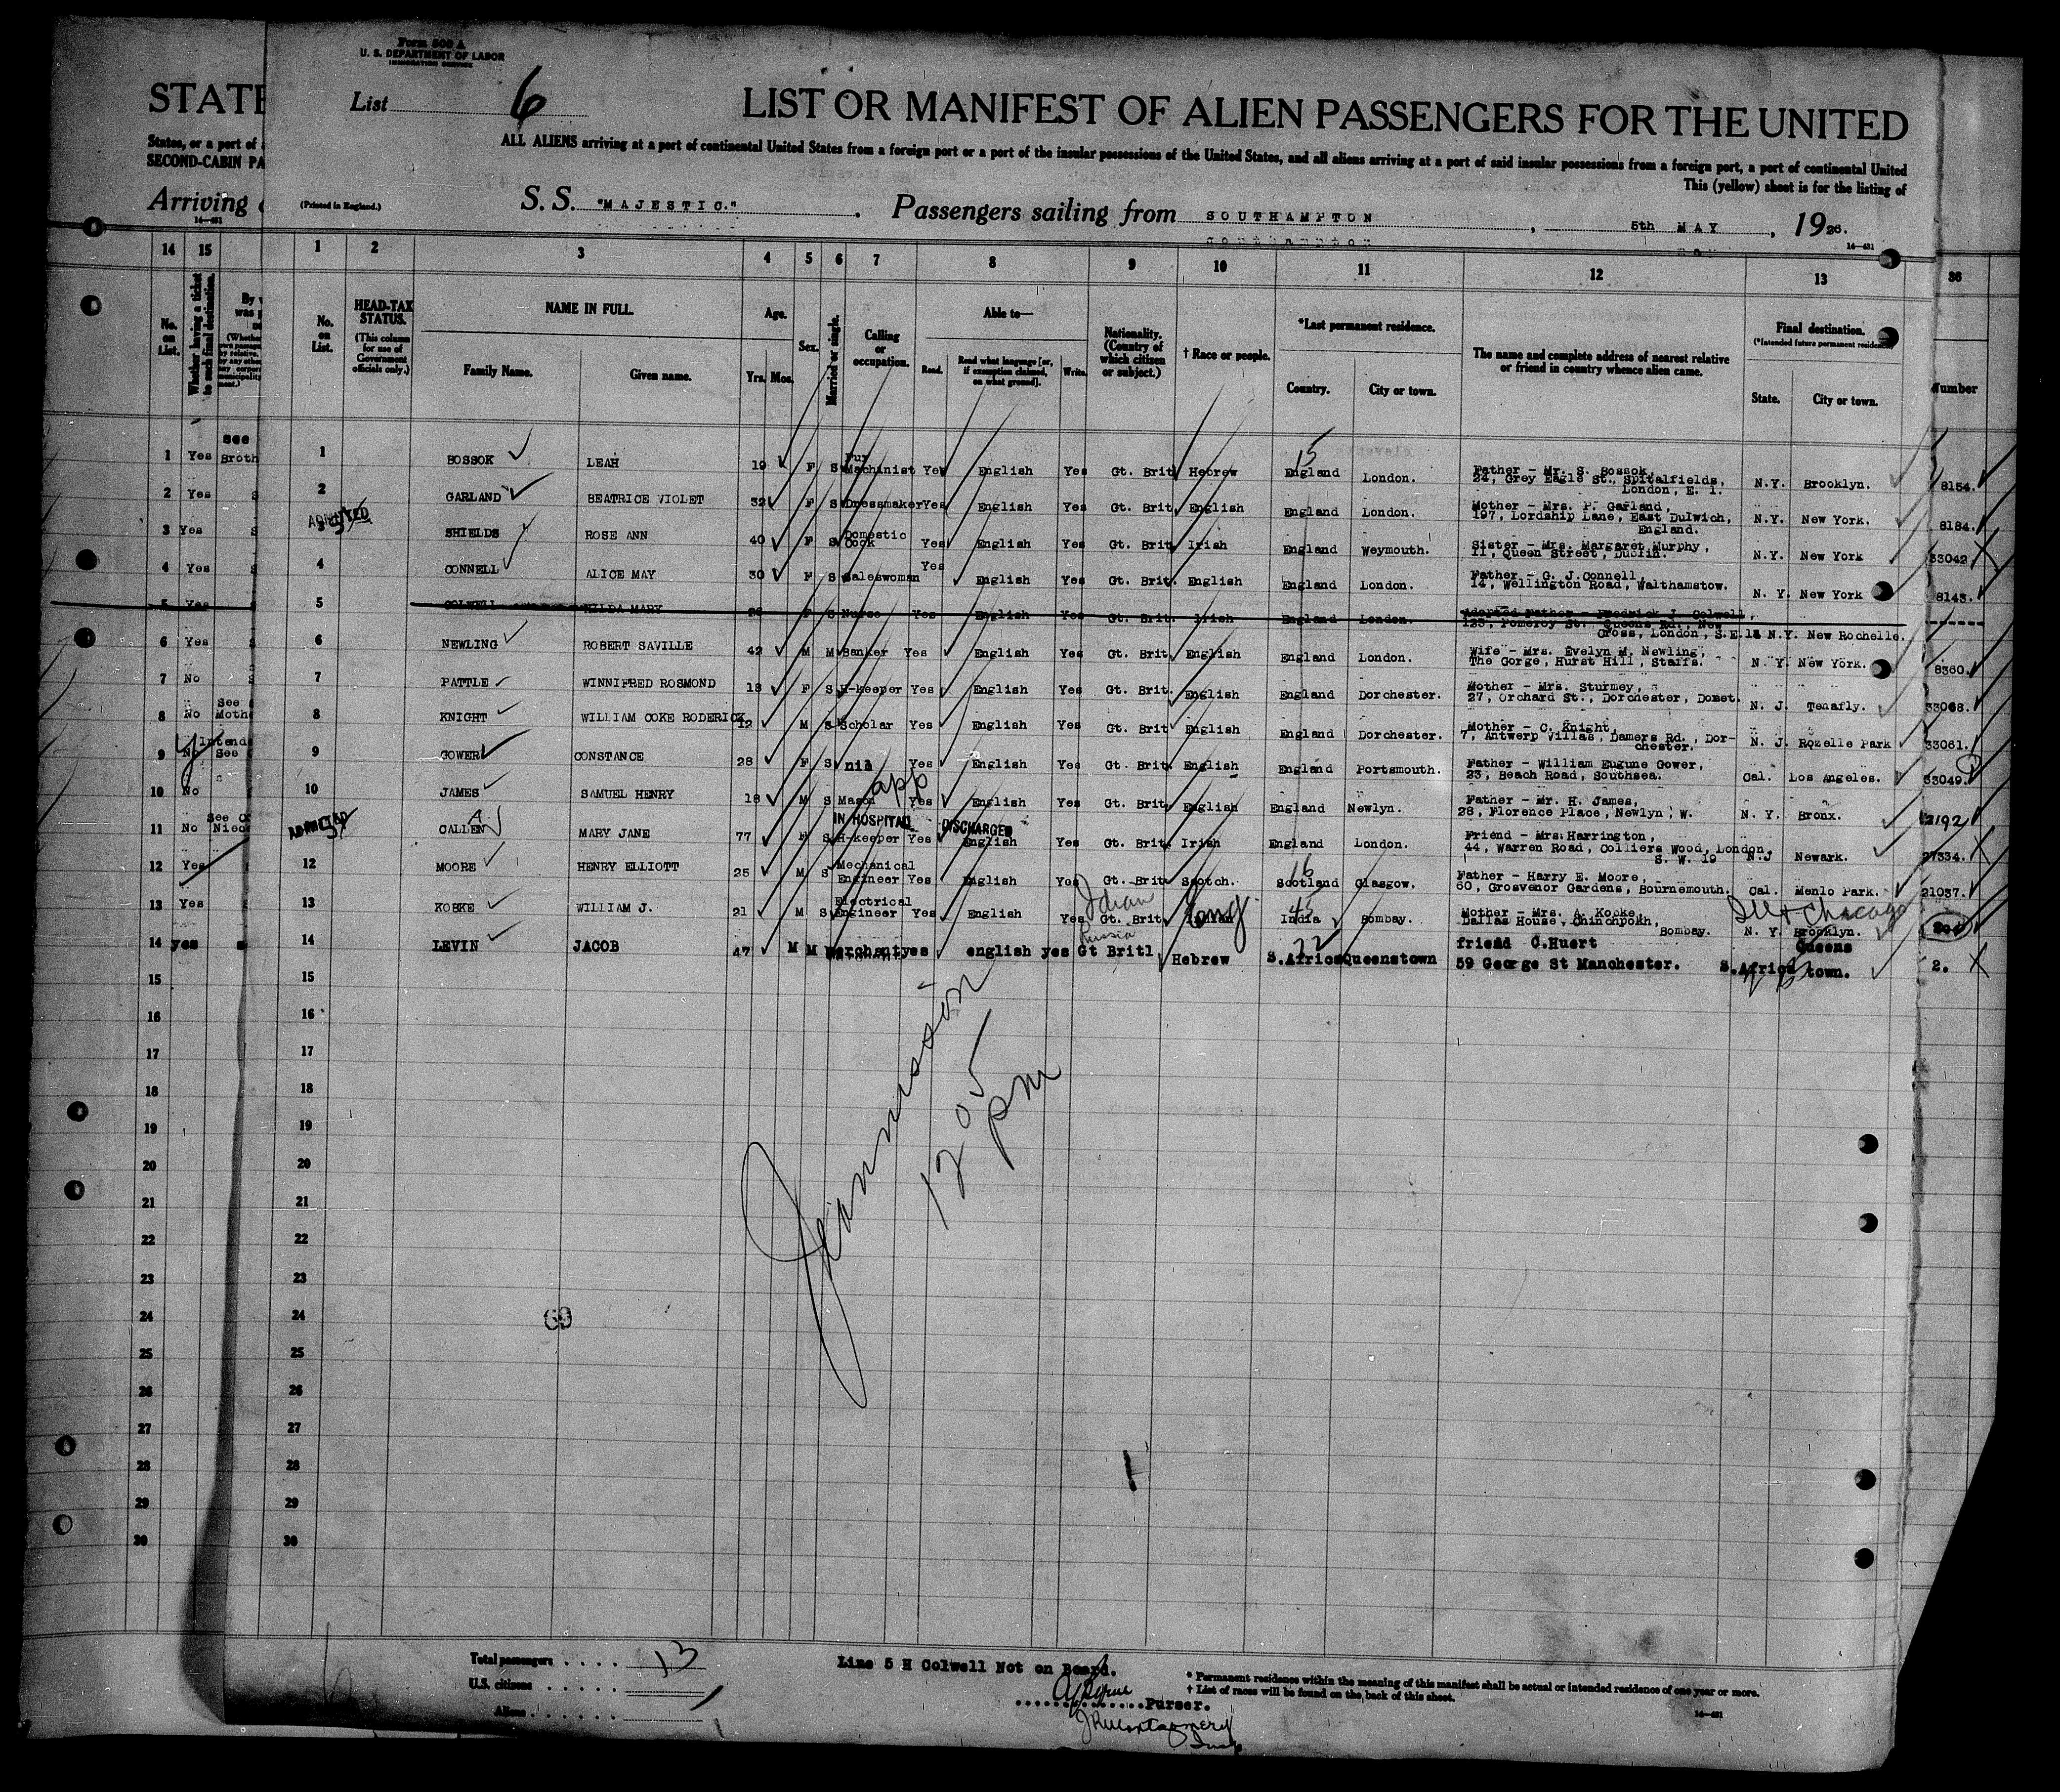 Form 500 A
U. S. DEPARTMENT OF LABOR
IMMIGRATION SERVICE
STATE
List 6
LIST OR MANIFEST OF ALIEN PASSENGERS FOR THE UNITED
States, or a port of
SECOND-CABIN PA
ALL ALIENS arriving at a port of continental United States from a foreign port or a port of the insular possessions of the United States, and all aliens arriving at a port of said insular possessions from a foreign port, a port of continental United
This (yellow) sheet is for the listing of
Arriving
(Printed in England.)
S. S. "MAJESTIC." . Passengers sailing from SOUTHAMPTON , 5th MAY , 1926.
14 15 1 2 3 4 5 6 7 8 9 10 11 12 13 36
No. on List. Whether having a ticket to such final destination.
No. on List. HEAD-TAX STATUS. (This column for use of Government officials only.) NAME IN FULL. Family Name. Given name. Age. Yrs. Mos. Sex. Married or single. Calling or occupation. Able to— Read. Read what language [or, if exemption claimed, on what ground]. Write. Nationality. (Country of which citizen or subject.) † Race or people. *Last permanent residence. Country. City or town. The name and complete address of nearest relative or friend in country whence alien came. Final destination. (*Intended future permanent residence) State. City or town. Number
1 Yes see Broth 1 BOSSOK LEAH 19 F S Fur Machinist Yes English Yes Gt. Brit Hebrew 15 England London. Father - Mr. S. Bossok, 24, Grey Eagle St., Spitalfields, London, E. 1. N.Y. Brooklyn. 8154.
2 Yes 2 GARLAND BEATRICE VIOLET 32 F S Dressmaker Yes English Yes Gt. Brit English England London. Mother - Mrs. P. Garland, 197, Lordship Lane, East Dulwich, England. N.Y. New York. 8184.
3 Yes ADMITTED 3 SHIELDS ROSE ANN 40 F S Domestic Cook Yes English Yes Gt. Brit Irish England Weymouth. Sister - Mrs. Margaret Murphy, 11, Queen Street, Dublin. N.Y. New York 33042
4 Yes 4 CONNELL ALICE MAY 30 F S Saleswoman Yes English Yes Gt. Brit. English England London. Father - G. J. Connell, 14, Wellington Road, Walthamstow. N. Y. New York 8143.
5 Yes 5 COLWELL HILDA MARY 28 F S Nurse Yes English Yes Gt. Brit. Irish England London. Adopted Father - Fredrick J. Colwell, 123, Pomeroy St. Queens Rd., New Cross, London, S.E.14 N.Y. New Rochelle.
6 Yes 6 NEWLING ROBERT SAVILLE 42 M M Banker Yes English Yes Gt. Brit. English England London. Wife - Mrs. Evelyn M. Newling, The Gorge, Hurst Hill, Staffs. N. Y. New York. 8360.
7 No 7 PATTLE WINNIFRED ROSMOND 18 F S H-keeper Yes English Yes Gt. Brit. English England Dorchester. Mother - Mrs. Sturmey, 27, Orchard St., Dorchester, Domet. N. J. Tenafly. 33068.
8 No See Moth 8 KNIGHT WILLIAM COKE RODERICK 12 M S Scholar Yes English Yes Gt. Brit English England Dorchester. Mother - C. Knight, 7, Antwerp Villas, Damers Rd., Dor-chester. N. J. Rozelle Park 33061.
9 No Intend See 9 GOWER CONSTANCE 28 F S nil Yes English Yes Gt. Brit. English England Portsmouth. Father - William Eugune Gower, 23, Beach Road, Southsea. Cal. Los Angeles. 33049.
10 No 10 JAMES SAMUEL HENRY 18 M S Mason app Yes English Yes Gt. Brit. English England Newlyn. Father - Mr. H. James, 28, Florence Place, Newlyn, W. N. Y. Bronx. 12192
11 No See Niec ADMITTED 11 CALLEN A MARY JANE 77 F S H-keeper IN HOSPITAL Yes DISCHARGED English Yes Gt. Brit. Irish England London. Friend - Mrs. Harrington, 44, Warren Road, Colliers Wood, London, S. W. 19 N.J Newark. 27334.
12 Yes 12 MOORE HENRY ELLIOTT 25 M S Mechanical Engineer Yes English Yes Gt. Brit. Scotch. 16 Scotland Glasgow. Father - Harry E. Moore, 60, Grosvenor Gardens, Bournemouth. Cal. Menlo Park. 21037.
13 Yes 13 KOBKE WILLIAM J. 21 M S Electrical Engineer Yes English Yes Indian Gt. Brit. Eng. 45 India Bombay. Mother - Mrs. A. Kocke, Dallas House, Chinchpokh, Bombay. Ill + Chicago N. Y. Brooklyn.
14 yes 14 LEVIN JACOB 47 M M merchant yes english yes Russia Gt Britl Hebrew 22 S.Africa Queenstown friend C.Huert 59 George St Manchester. S.Africa Queens town. 2.
15 15
16 16
17 17
18 18
19 19
20 20
21 21
22 22
23 23
24 24
25 25
26 26
27 27
28 28
29 29
30 30
Jamnisson
12 05
pm
69
Total passengers . . . . 13
U.S. citizens . . . . .
Aliens . . . . . .
Line 5 H Colwell Not on Board.
Purser.
JR Montgomery
* Permanent residence within the meaning of this manifest shall be actual or intended residence of one year or more.
† List of races will be found on the back of this sheet.